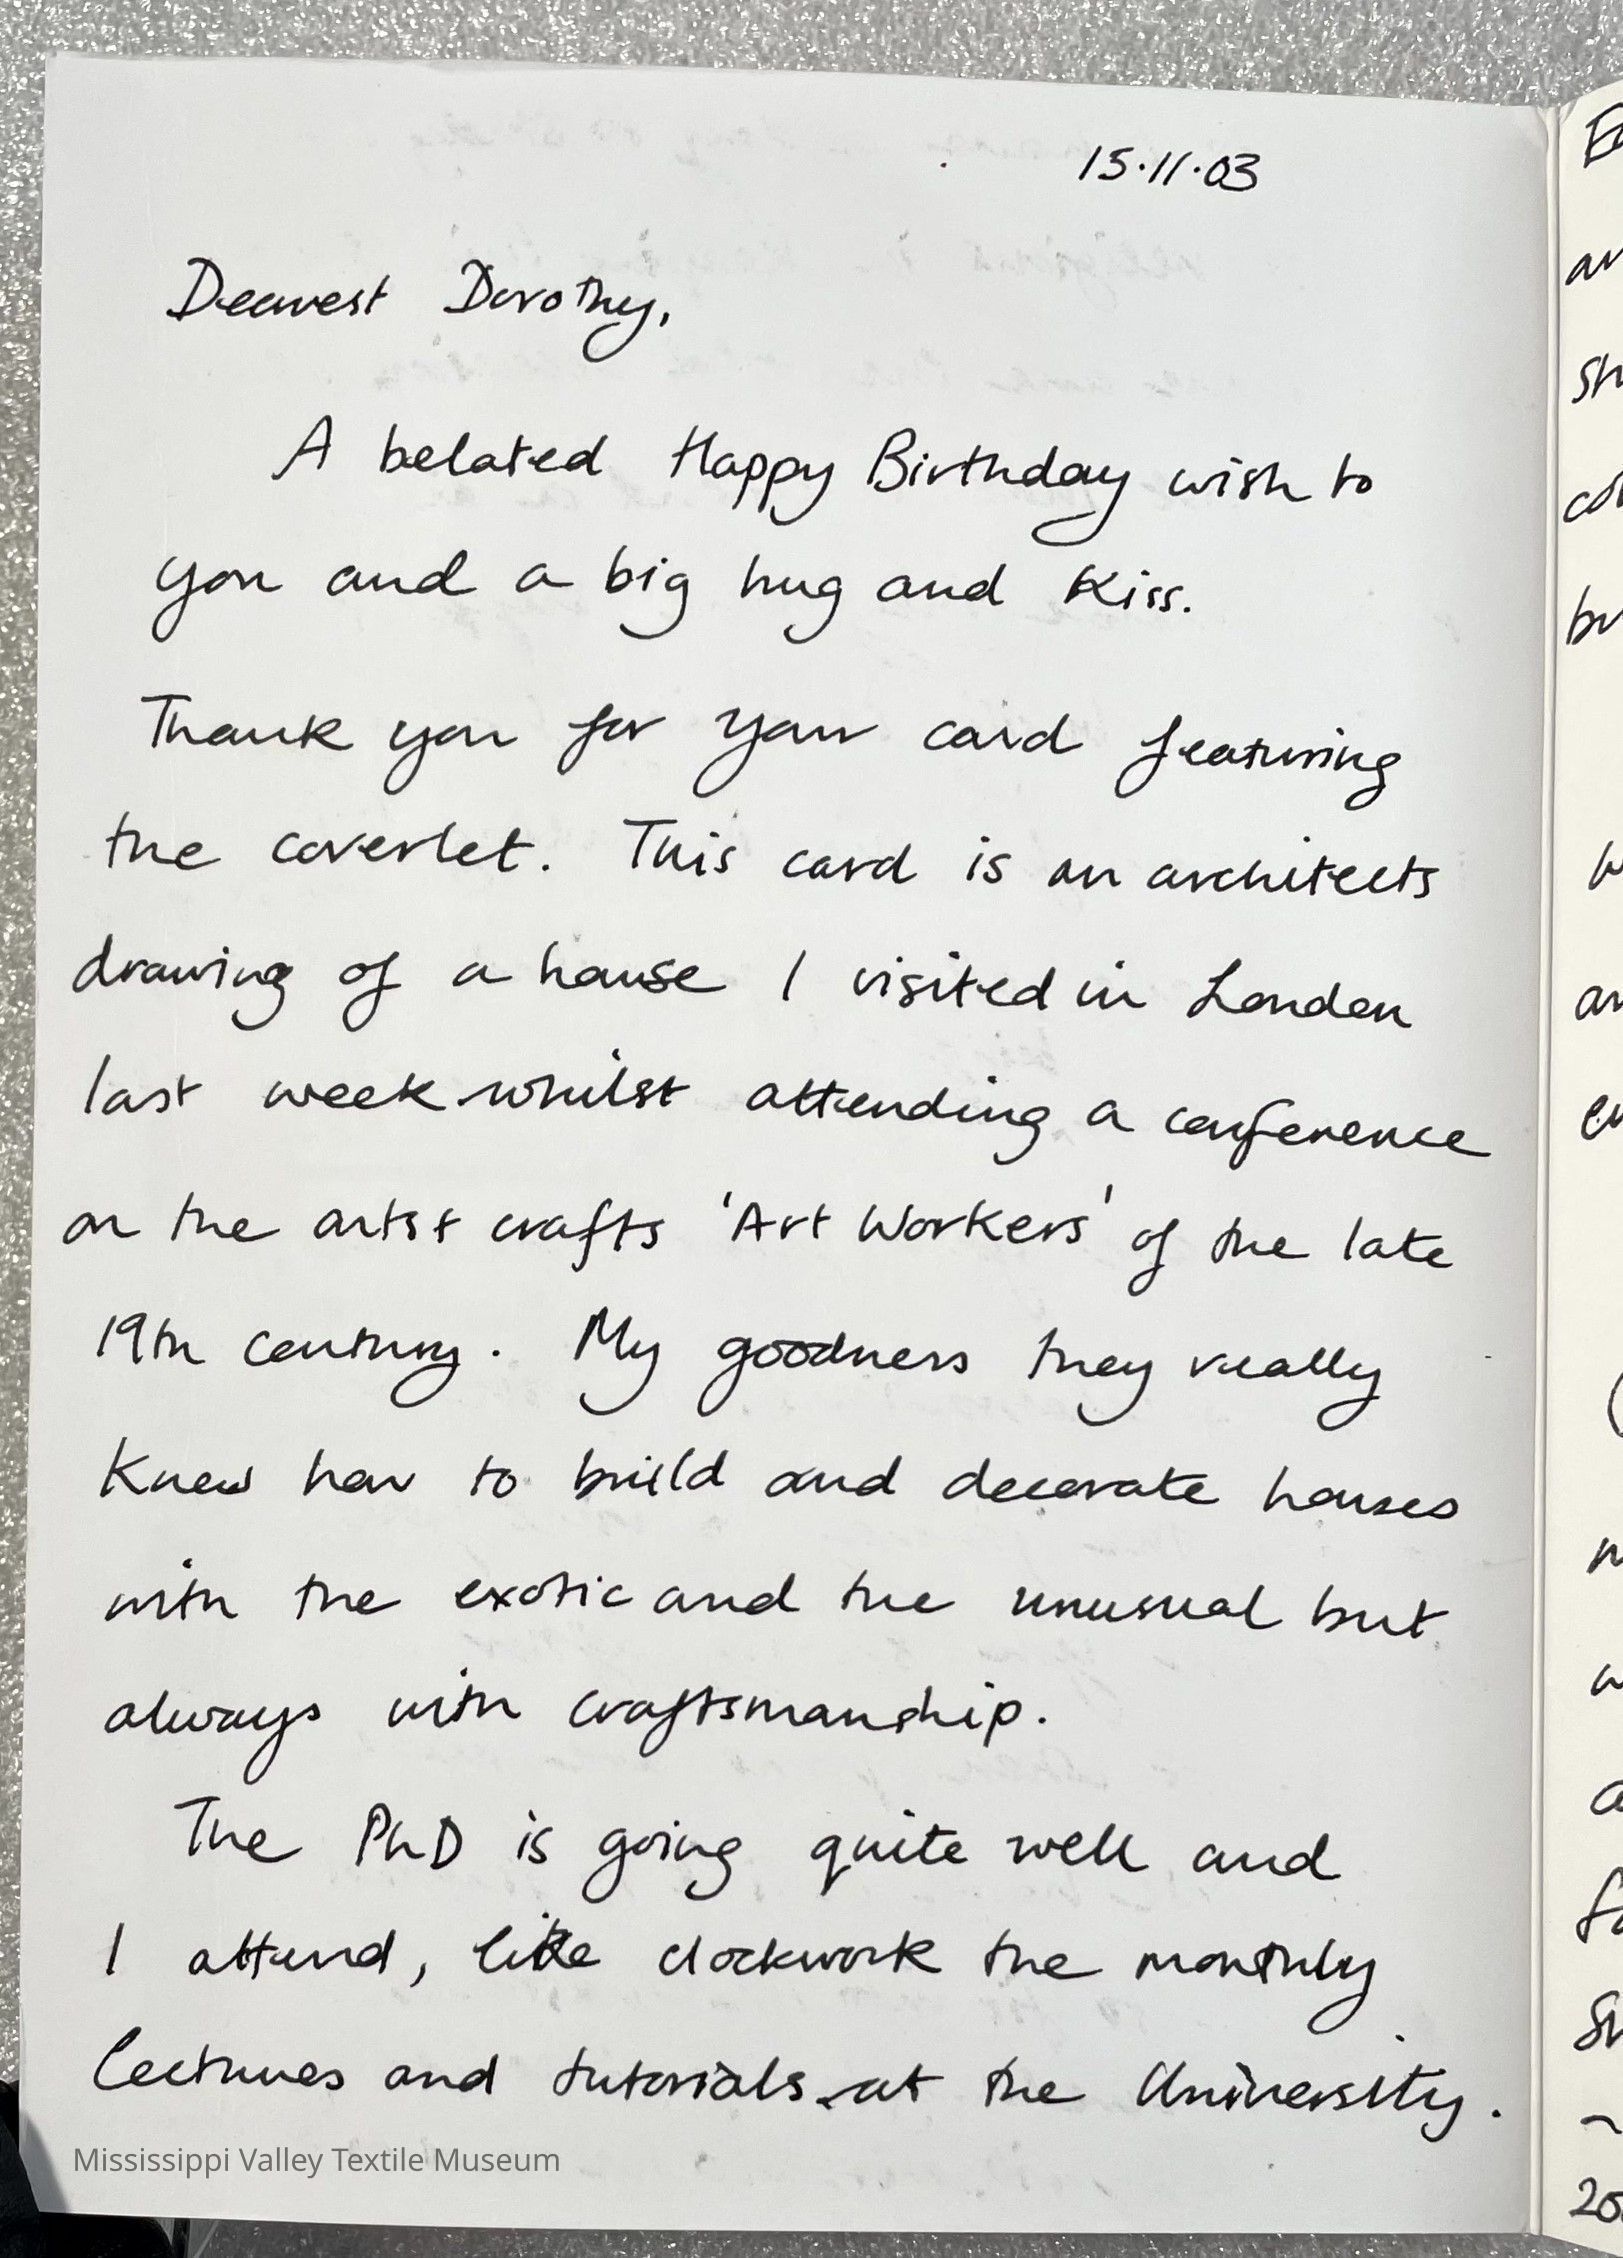 15.11.03
Dearest Dorothy,
A belated Happy Birthday wish to
you and a big hug and kiss.
Thank you for your card featuring
the coverlet. This card is an architects
drawing of a house I visited in London
last week whilst attending a conference
on the arts + crafts 'Art Workers' of the late
19th century. My goodness they really
knew how to build and decorate houses
with the exotic and the unusual but
always with craftsmanship.
The PhD is going quite well and
I attend, like clockwork the monthly
lectures and tutorials at the University.
Mississippi Valley Textile Museum